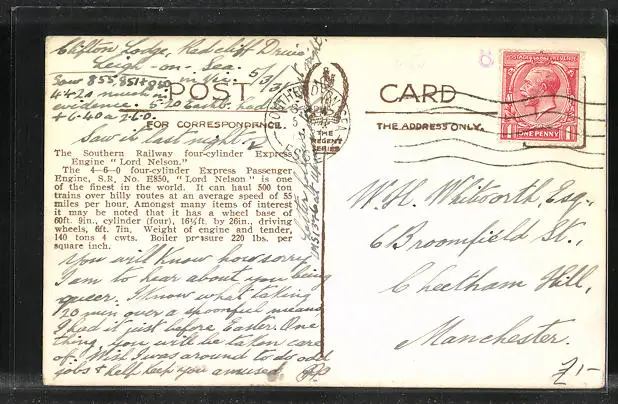 Clifton Lodge, Redcliff Drive
Leigh-on-Sea. 5/3/3
Saw 855, 851 + 850
in Vic.
4-4-2s much in
evidence.
+ 6.40 a 2-6-0.
Saw it last night.
POST CARD
FOR CORRESPONDENCE.
THE ADDRESS ONLY.
THE
REGENT
SERIES
SOUTHEND-ON-SEA
ESSEX
POSTAGE REVENUE
ONE PENNY
The Southern Railway four-cylinder Express
Engine "Lord Nelson."
The 4-6-0 four-cylinder Express Passenger
Engine, S.R. No. E850, "Lord Nelson" is one
of the finest in the world. It can haul 500 ton
trains over hilly routes at an average speed of 55
miles per hour. Amongst many items of interest
it may be noted that it has a wheel base of
60ft. 9in., cylinder (four), 16½ft. by 26in., driving
wheels, 6ft. 7in. Weight of engine and tender,
140 tons 4 cwts. Boiler pressure 220 lbs. per
square inch.
You will know how sorry
I am to hear about you being
queer. I know what taking
20 min over a spoonful means
I had it just before Easter. One
thing, you will be taken care
of. Wish I was around to do odd
jobs & help keep you amused.
W. H. Whitworth, Esq.,
6 Broomfield St.,
Cheetham Hill,
Manchester.
£/-